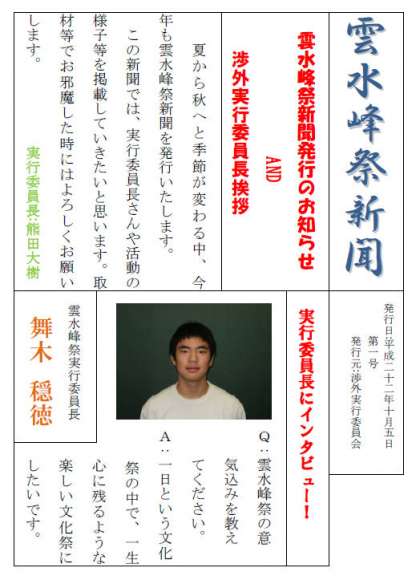 雲水峰祭新聞
発行日:平成二十二年十月五日
第一号
発行元:渉外実行委員会
雲水峰祭新聞発行のお知らせ
AND
渉外実行委員長挨拶
夏から秋へと季節が変わる中、今
年も雲水峰祭新聞を発行いたします。
この新聞では、実行委員長さんや活動の
様子等を掲載していきたいと思います。取
材等でお邪魔した時にはよろしくお願い
します。
実行委員長:熊田大樹
実行委員長にインタビュー！
Q:雲水峰祭の意
気込みを教え
てください。
A:一日という文化
祭の中で、一生
心に残るような
楽しい文化祭に
したいです。
雲水峰祭実行委員長
舞木 穏徳